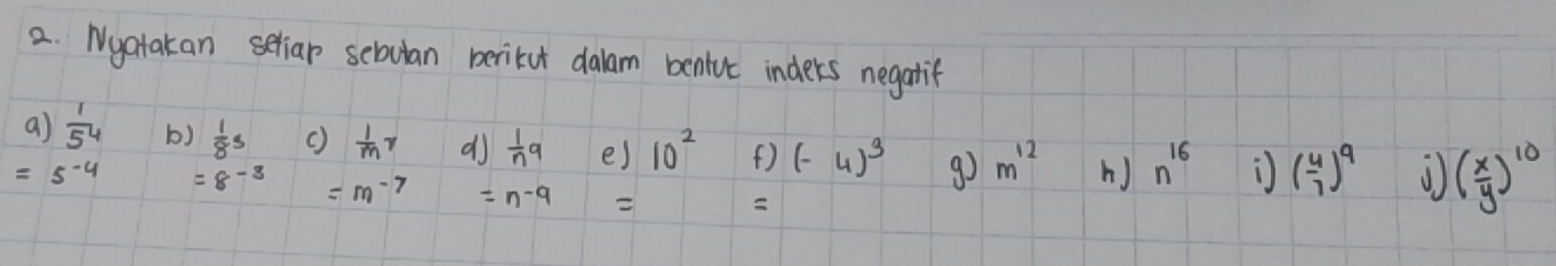 2. Nyatakan setiap sebutan berikut dalam bentuk indeks negatif
a) 1/5⁴ b) 1/8³ c) 1/m⁷ d) 1/n⁹ e) 10² f) (- 4)³ g) m¹² h) n¹⁶ i) (4/7)⁹ j) (x/y)¹⁰
= 5⁻⁴ = 8⁻³ = m⁻⁷ = n⁻⁹ = =